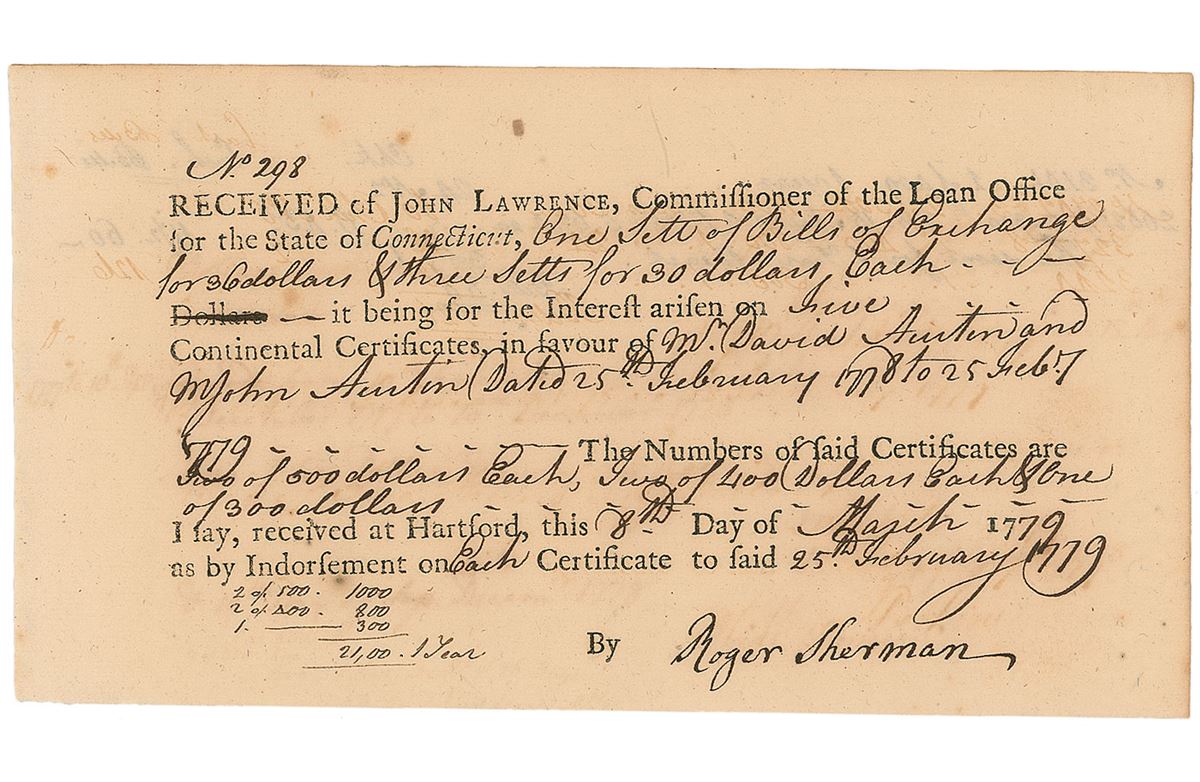 No. 298
RECEIVED of JOHN LAWRENCE, Commiſſioner of the Loan Office
for the State of Connecticut, One Sett of Bills of Exchange
for 36 dollars & three Setts for 30 dollars Each
Dollars it being for the Intereſt ariſen on Five
Continental Certificates, in favour of Mr. David Austin and
John Austin Dated 25th February 1778 to 25 Feby
1779 The Numbers of ſaid Certificates are
Two of 500 dollars Each, Two of 400 Dollars Each & One
of 300 dollars
I ſay, received at Hartford, this 8th Day of March 1779
as by Indorſement on Each Certificate to ſaid 25th February 1779
2 of 500. 1000
2 of 400. 800
1. 300
21,00. 1 Year
By Roger Sherman